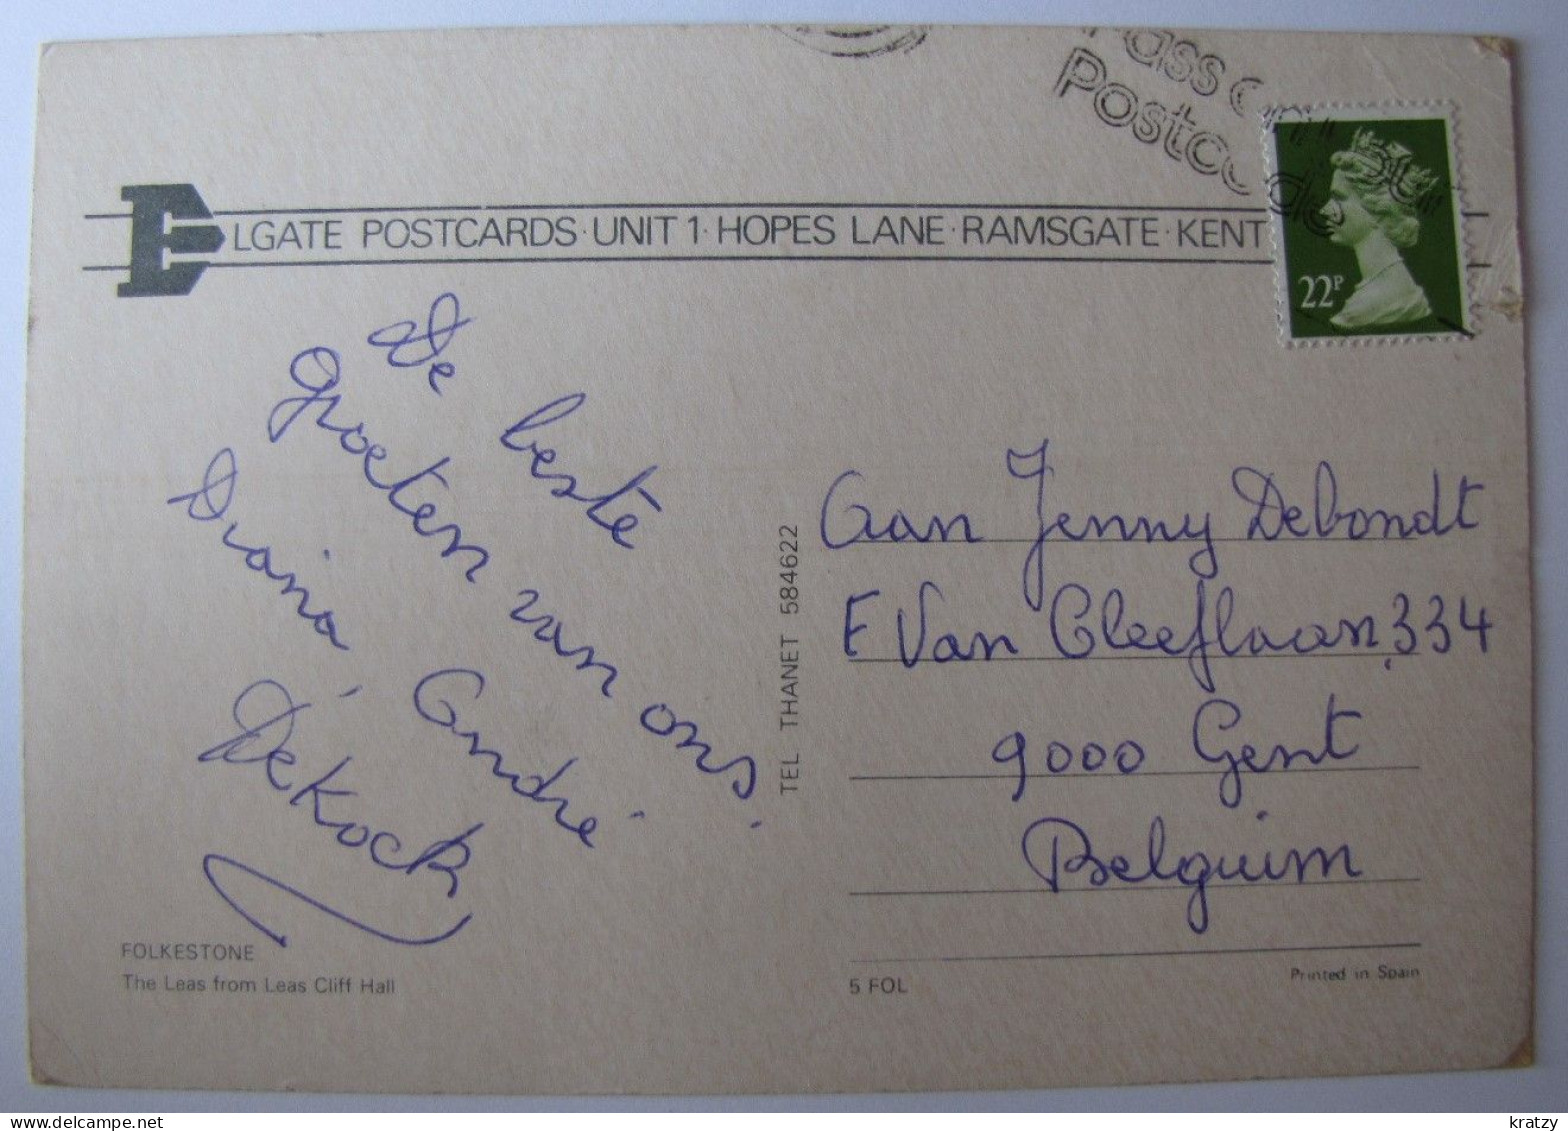 Pass
Postcode
ELGATE POSTCARDS · UNIT 1 · HOPES LANE · RAMSGATE · KENT
22P
De beste
groeten van ons
Diana, André
DeKock
TEL THANET 584622
Aan Jenny Debondt
E Van Cleeflaan, 334
9000 Gent
Belguim
FOLKESTONE
The Leas from Leas Cliff Hall
5 FOL
Printed in Spain
kratzy